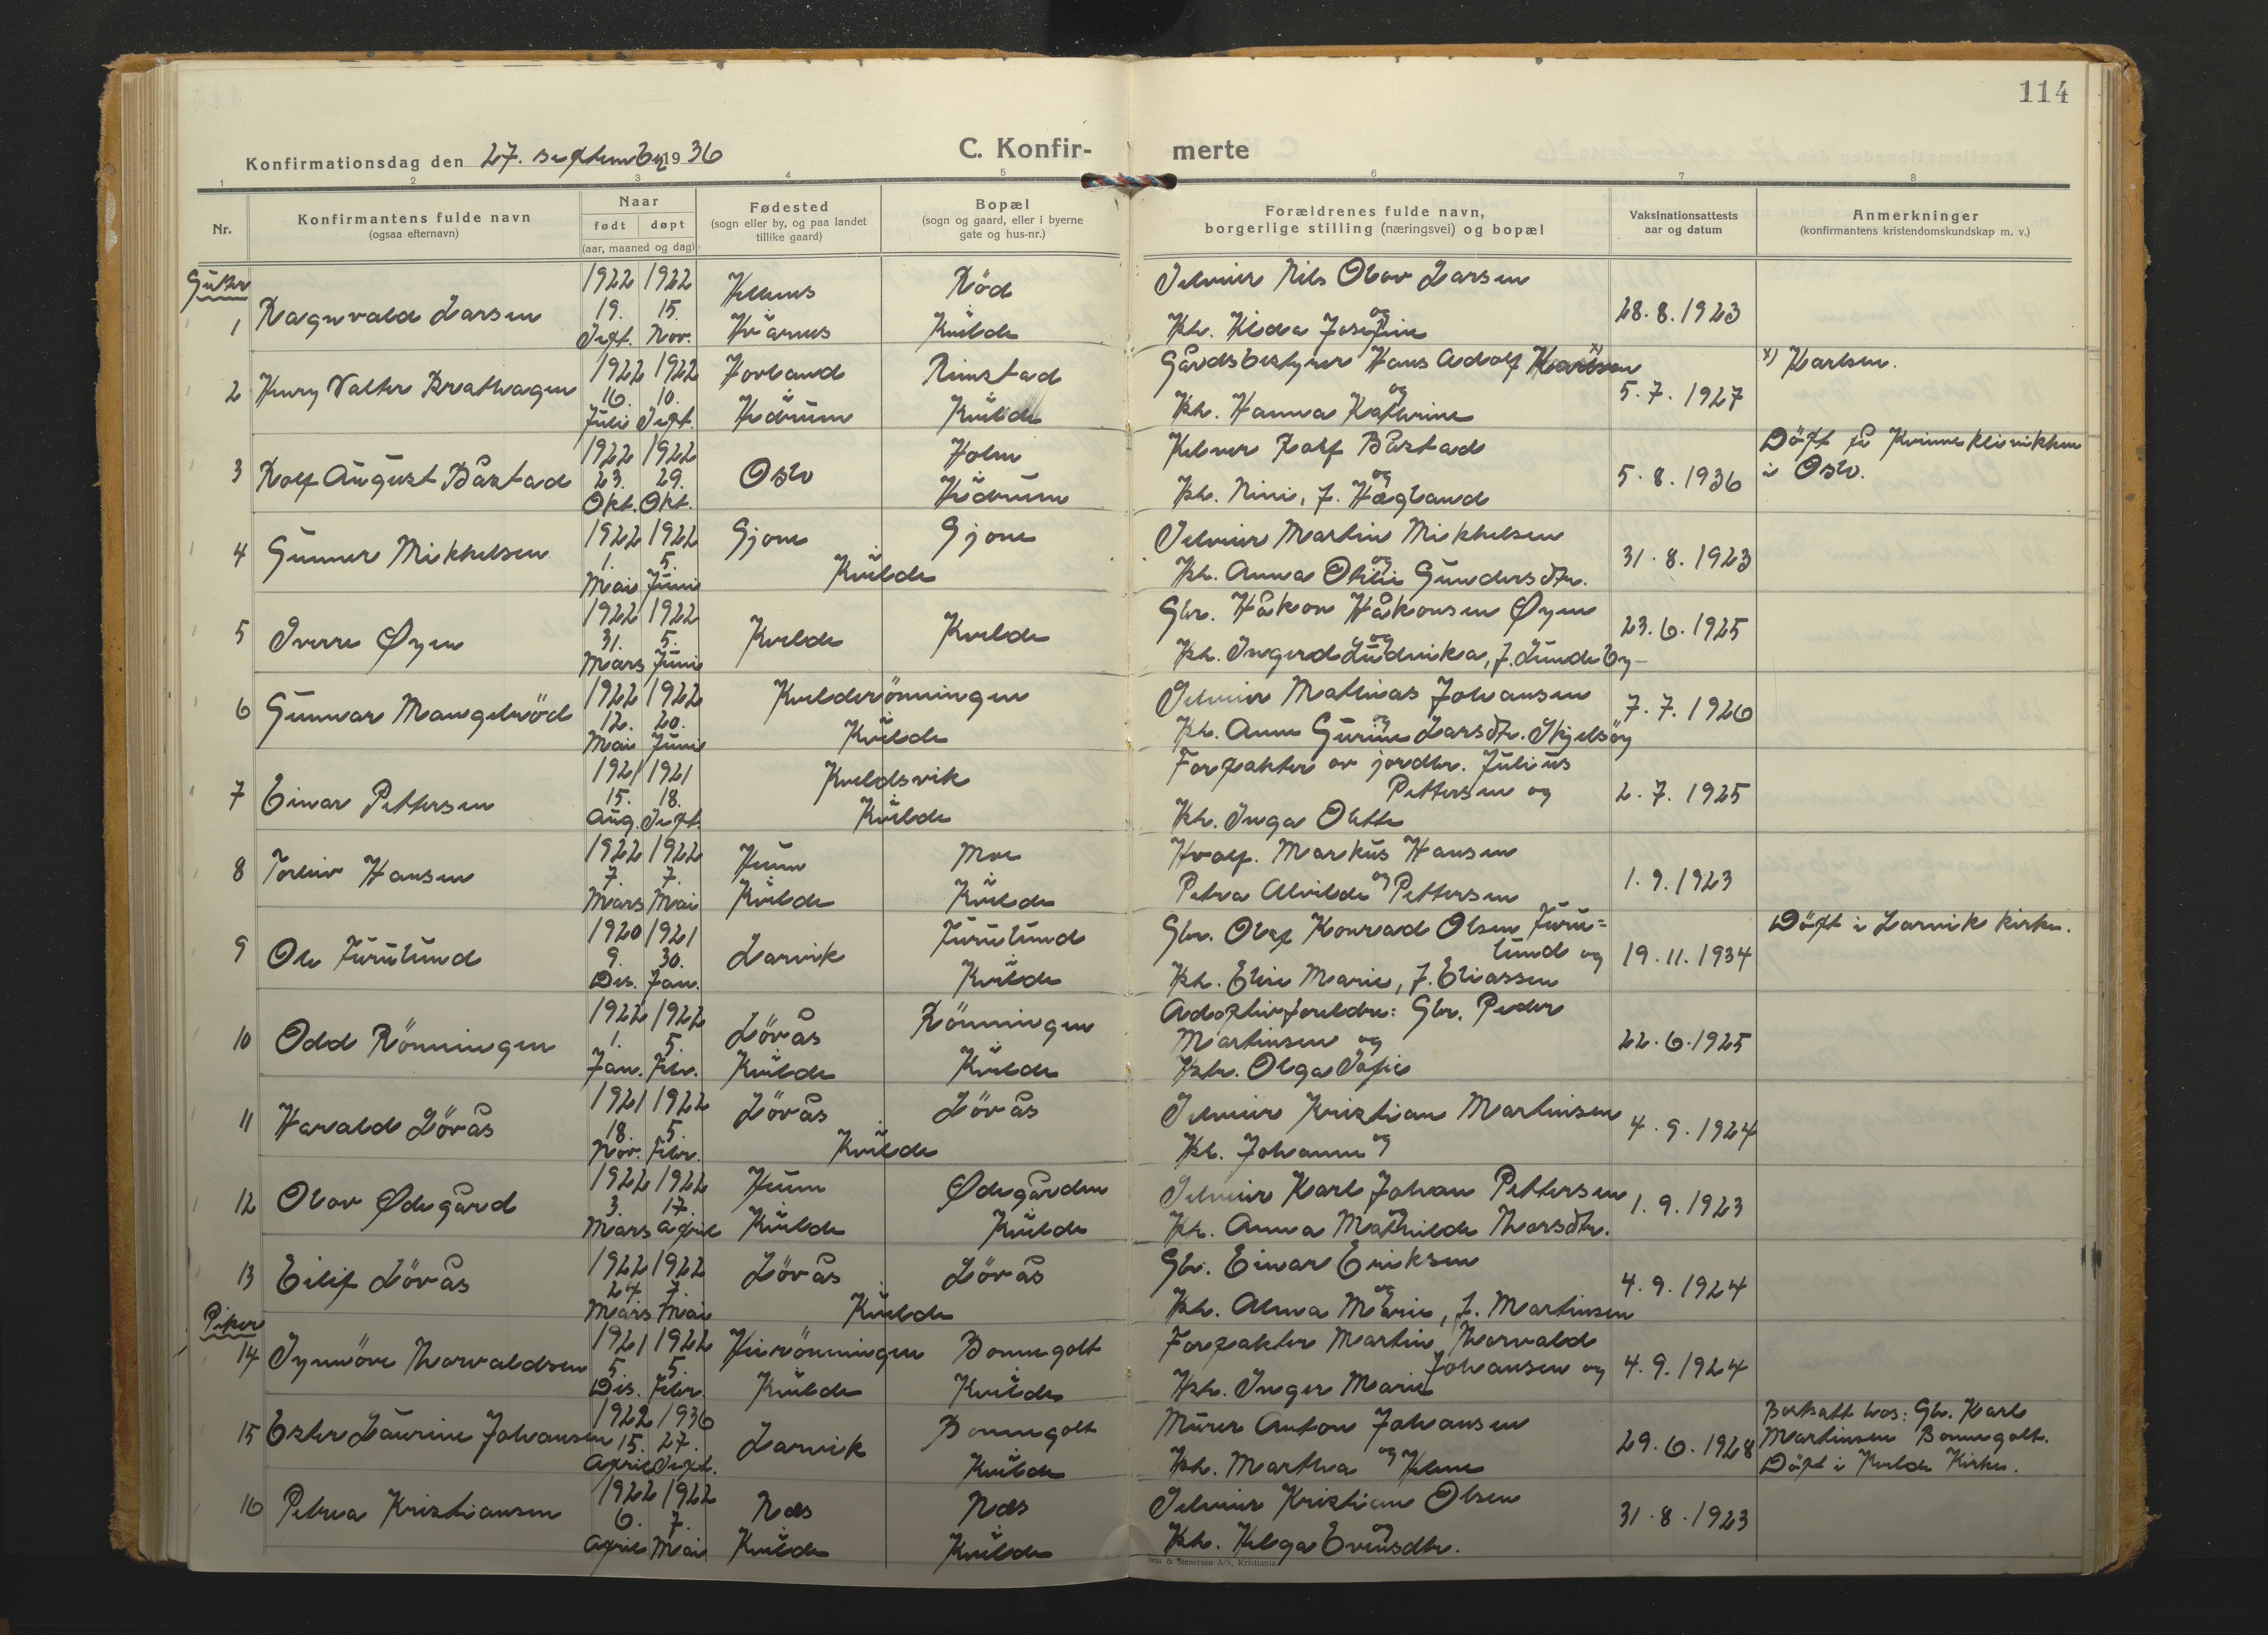 114
Konfirmationsdag den 27. september 1936
C. Konfir-
merte
1 2 3 4 5 6 7 8
Nr.
Konfirmantens fulde navn
(ogsaa efternavn)
Naar
født døpt
(aar, maaned og dag)
Fødested
(sogn eller by, og paa landet
tillike gaard)
Bopæl
(sogn og gaard, eller i byerne
gate og hus-nr.)
Forældrenes fulde navn,
borgerlige stilling (næringsvei) og bopæl
Vaksinationsattests
aar og datum
Anmerkninger
(konfirmantens kristendomskundskap m. v.)
Gutter
1922 1922 Rød Selveier Nils Olav Larsen
1 Ragnvald Larsen 19. 15. og 28.8.1923
Sept. Nov. Kvelde Kh. Hilda Josefine
1922 1922 Hovland Rimstad Gårdsbestyrer Hans Adolf x) x) Karlsen.
2 Henry Valter Brathagen 16. 10. og 5.7.1927
Juli Sept. Hedrum Kvelde Kh. Hanna Kathrine
1922 1922 Holm Kelner Rolf Båstad Döpt på Kvinneklinikken
3 Rolf August Båstad 23. 29. Oslo og 5.8.1936 i Oslo.
Okt. Okt. Hedrum Kh. Nini, f. Hægland
1922 1922 Gjone Gjone Selveier Martin Mikkelsen
4 Gunner Mikkelsen 1. 5. og 31.8.1923
Mai Juni Kvelde Kh. Anna Otilie Gundersdtr.
1922 1922 Gbr. Håkon Håkonsen Øyen
5 Sverre Øyen 31. 5. Kvelde Kvelde og 23.6.1925
Mars Juni Kh. Ingerd Ludvika, f. Lundeby
1922 1922 Kvelderönningen Selveier Mathias Johansen
6 Gunnar Mangelröd 12. 20. og 7.7.1926
Mai Juni Kvelde Kh. Anne Gurine Larsdtr. Skjelsöy
1921 1921 Kveldsvik Forpakter av jordbr. Julius
7 Einar Pettersen 15. 18. Pettersen og 2.7.1925
Aug. Sept. Kvelde Kh. Inga Olette
1922 1922 Heum Moe Hvalf. Markus Hansen
8 Torleiv Hansen 7. 7. og 1.9.1923
Mars Mai Kvelde Kvelde Petra Alvilde Pettersen
1920 1921 Furulund Gbr. Olaf Konrad Olsen Furu= Döpt i Larvik kirke.
9 Ole Furulund 9. 30. Larvik lund og 19.11.1934
Des. Jan. Kvelde Kh. Elise Marie, f. Eliassen
1922 1922 Lövås Rönningen Adoptivforeldre: Gbr. Peder
10 Odd Rönningen 1. 5. Martinsen og 22.6.1925
Jan. Febr. Kvelde Kvelde Hstr. Olga Sofie
1921 1922 Lövås Lövås Selveier Kristian Martinsen
11 Harald Lövås 18. 5. og 4.9.1924
Nov. Febr. Kvelde Kh. Johanne
1922 1922 Heum Ødegården Selveier Karl Johan Pettersen
12 Olav Ødegård 3. 17. og 1.9.1923
Mars April Kvelde Kvelde Kh. Anna Mathilde Larsdtr.
1922 1922 Lövås Lövås Gbr. Einar Eriksen
13 Eilif Lövås 24. 7. og 4.9.1924
Mars Mai Kvelde Kh. Alma Marie, f. Martinsen
Piker
1921 1922 Bommegolt Forpakter Martin Thorvald
14 Synnöve Thorvaldsen 5. 5. Johansen og 4.9.1924
Des. Febr. Kvelde Kvelde Hstr. Inger Marie
1922 1936 Bommegolt Murer Anton Johansen Bortsatt hos: Gbr. Karl
15 Ester Laurine Johansen 15. 27. Larvik og 29.6.1928 Martinsen Bommegolt.
April Sept. Kvelde Kh. Martha Helene Döpt i Kvelde Kirke.
1922 1922 Næs Næs Selveier Kristian Olsen
16 Petra Kristiansen 6. 7. og 31.8.1923
April Mai Kvelde Kvelde Kh. Helga Evensdtr.
& Stenersen A/S, Kristiania.